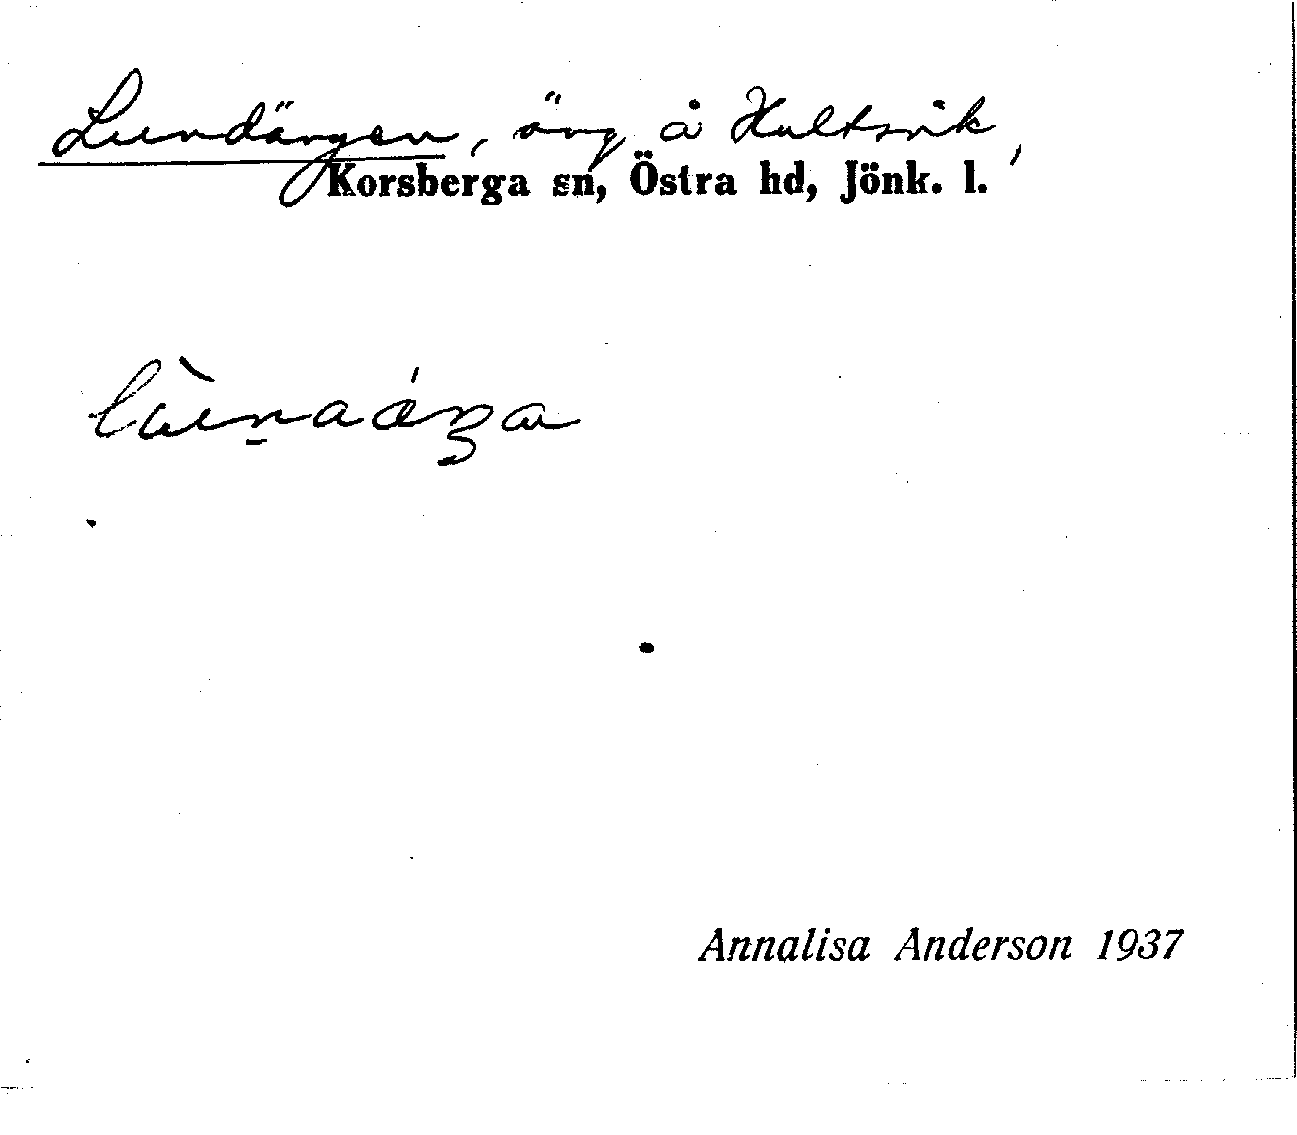 Lundängen, äng å Hultsvik,
Korsberga sn, Östra hd, Jönk. l.
Annalisa Anderson 1937